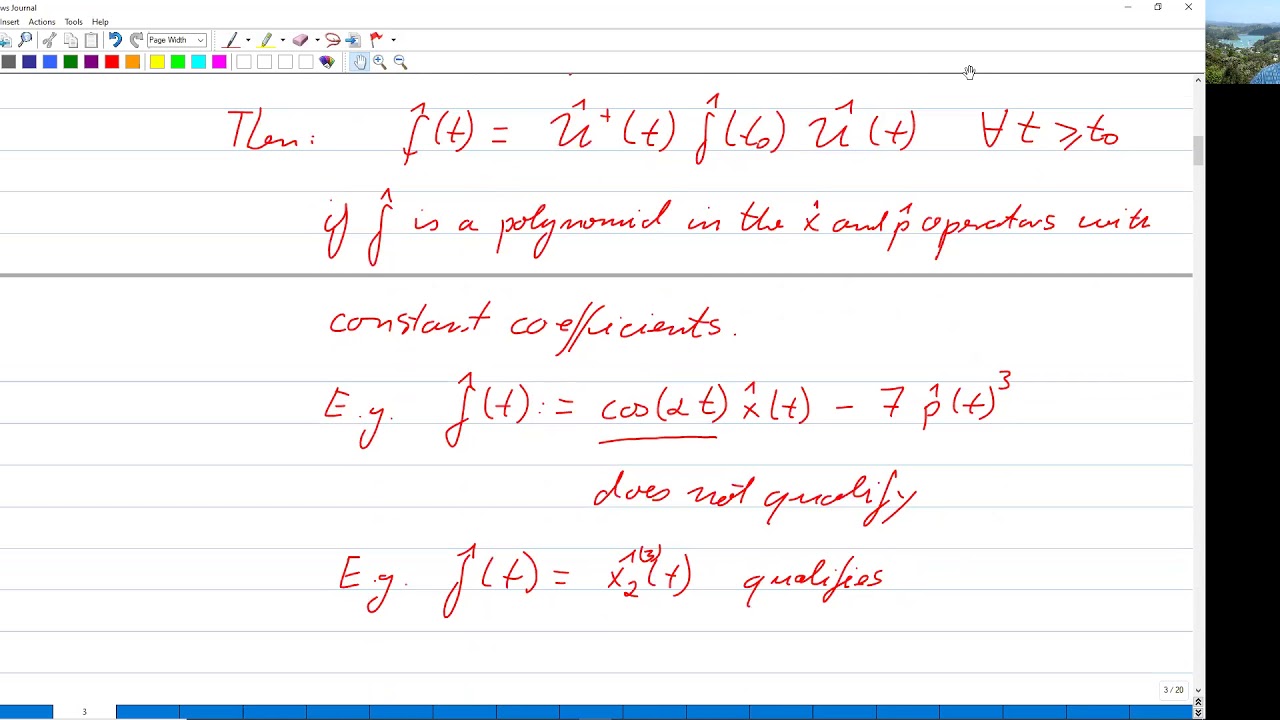 ws Journal
Insert Actions Tools Help
Page Width
Then: f̂(t) = Û⁺(t) f̂(t₀) Û(t) ∀ t ≥ t₀
if f̂ is a polynomial in the x̂ and p̂ operators with
constant coefficients.
E.g. f̂(t) := cos(αt) x̂(t) - 7 p̂(t)³
does not qualify
E.g. f̂(t) = x̂₂⁽³⁾(t) qualifies
3 / 20
3